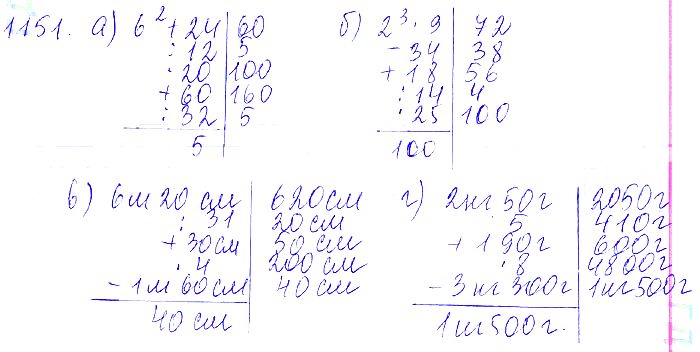 1151. а) 6² + 24 | 60
: 12 | 5
· 20 | 100
+ 60 | 160
: 32 | 5
5
б) 2³ · 9 | 72
- 34 | 38
+ 18 | 56
: 14 | 4
· 25 | 100
100
в) 6м 20 см | 620см
: 31 | 20см
+ 30см | 50 см
· 4 | 200 см
- 1м 60см | 40 см
40 см
г) 2кг 50г | 2050г
: 5 | 410г
+ 190г | 600г
· 8 | 4800г
- 3 кг 300г | 1кг500г
1кг500г.